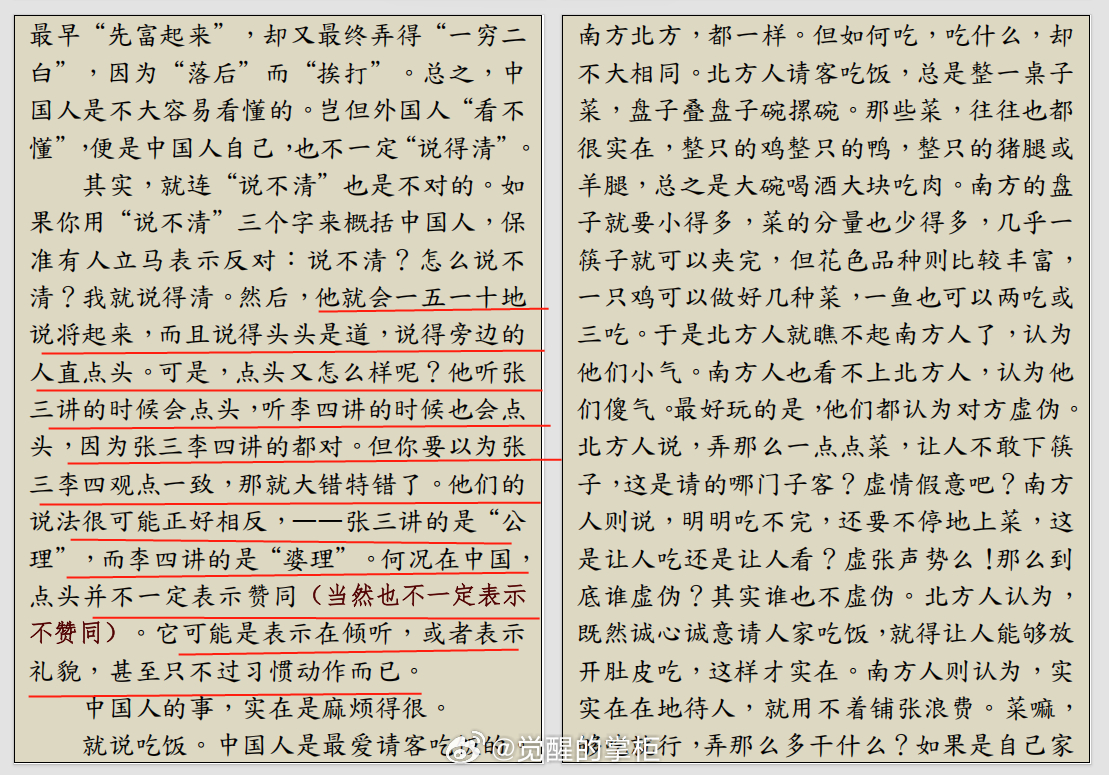 最早“先富起来”，却又最终弄得“一穷二
白”，因为“落后”而“挨打”。总之，中
国人是不大容易看懂的。岂但外国人“看不
懂”，便是中国人自己，也不一定“说得清”。
其实，就连“说不清”也是不对的。如
果你用“说不清”三个字来概括中国人，保
准有人立马表示反对：说不清？怎么说不
清？我就说得清。然后，他就会一五一十地
说将起来，而且说得头头是道，说得旁边的
人直点头。可是，点头又怎么样呢？他听张
三讲的时候会点头，听李四讲的时候也会点
头，因为张三李四讲的都对。但你要以为张
三李四观点一致，那就大错特错了。他们的
说法很可能正好相反，——张三讲的是“公
理”，而李四讲的是“婆理”。何况在中国，
点头并不一定表示赞同（当然也不一定表示
不赞同）。它可能是表示在倾听，或者表示
礼貌，甚至只不过习惯动作而已。
中国人的事，实在是麻烦得很。
就说吃饭。中国人是最爱请客吃的
南方北方，都一样。但如何吃，吃什么，却
不大相同。北方人请客吃饭，总是整一桌子
菜，盘子叠盘子碗摞碗。那些菜，往往也都
很实在，整只的鸡整只的鸭，整只的猪腿或
羊腿，总之是大碗喝酒大块吃肉。南方的盘
子就要小得多，菜的分量也少得多，几乎一
筷子就可以夹完，但花色品种则比较丰富，
一只鸡可以做好几种菜，一鱼也可以两吃或
三吃。于是北方人就瞧不起南方人了，认为
他们小气。南方人也看不上北方人，认为他
们傻气。最好玩的是，他们都认为对方虚伪。
北方人说，弄那么一点点菜，让人不敢下筷
子，这是请的哪门子客？虚情假意吧？南方
人则说，明明吃不完，还要不停地上菜，这
是让人吃还是让人看？虚张声势么！那么到
底谁虚伪？其实谁也不虚伪。北方人认为，
既然诚心诚意请人家吃饭，就得让人能够放
开肚皮吃，这样才实在。南方人则认为，实
实在在地待人，就用不着铺张浪费。菜嘛，
行，弄那么多干什么？如果是自己家
@觉醒的掌柜